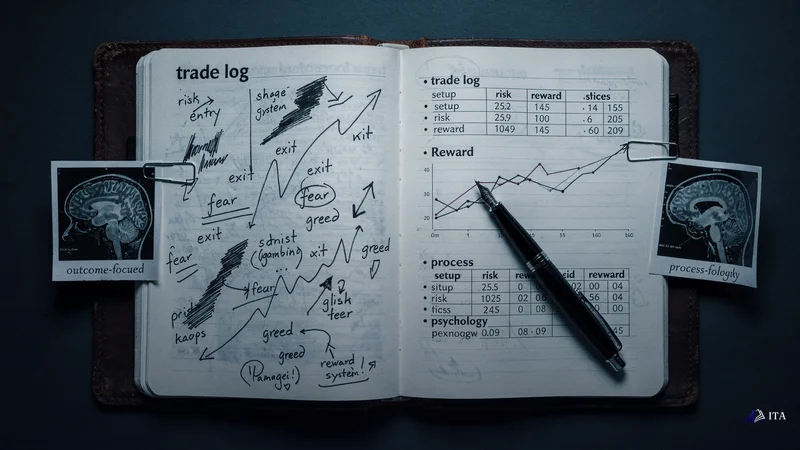 trade log
risk
entry
shoge
system
exit
kit
exit
exit
fear
fear
greed
exit
fear
sdnist
(gambing)
...
xit
greed
fear
glish
teer
kaops
greed
greed
reward
system!
(Pamagei!)
outcome-focued
• trade log
setup risk reward .stices
• setup 25.2 145 · 14 155
• risk 25.9 100 · 6 205
• reward 1049 145 · 60 209
• Reward
40
30
20
0m 1 10 55 160
• process
setup risk rew sid revward
• situp 25.5 0 02 00 04
• risk 1025 02 56 04
• ficss 245 0 08 00
• psychology
pexnoqgw 0.09 08 · 09 45
process-fologity
ITA